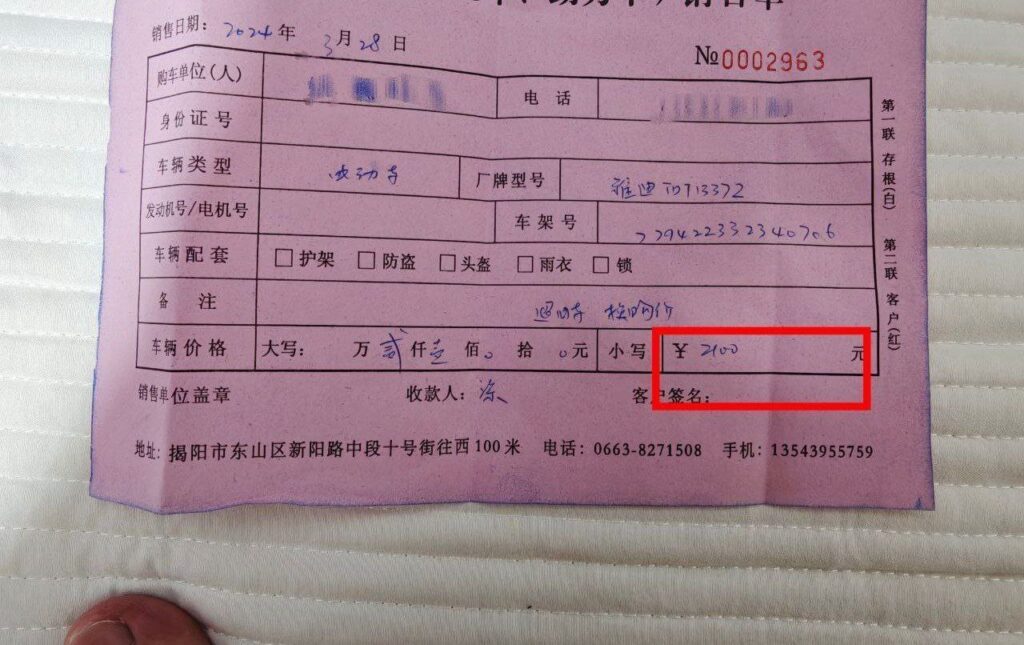 销售单
销售日期: 2024年 3月28日
№0002963
购车单位(人) 电话
身份证号
车辆类型 电动车 厂牌型号 雅迪TDT1337Z
发动机号/电机号 车架号 229422332340706
车辆配套 □护架 □防盗 □头盔 □雨衣 □锁
备注
车辆价格 大写: 万贰仟壹佰0拾0元 小写 ¥2100 元
销售单位盖章 收款人: 客户签名:
地址: 揭阳市东山区新阳路中段十号街往西100米 电话: 0663-8271508 手机: 13543955759
第一联 存根(白) 第二联 客户(红)